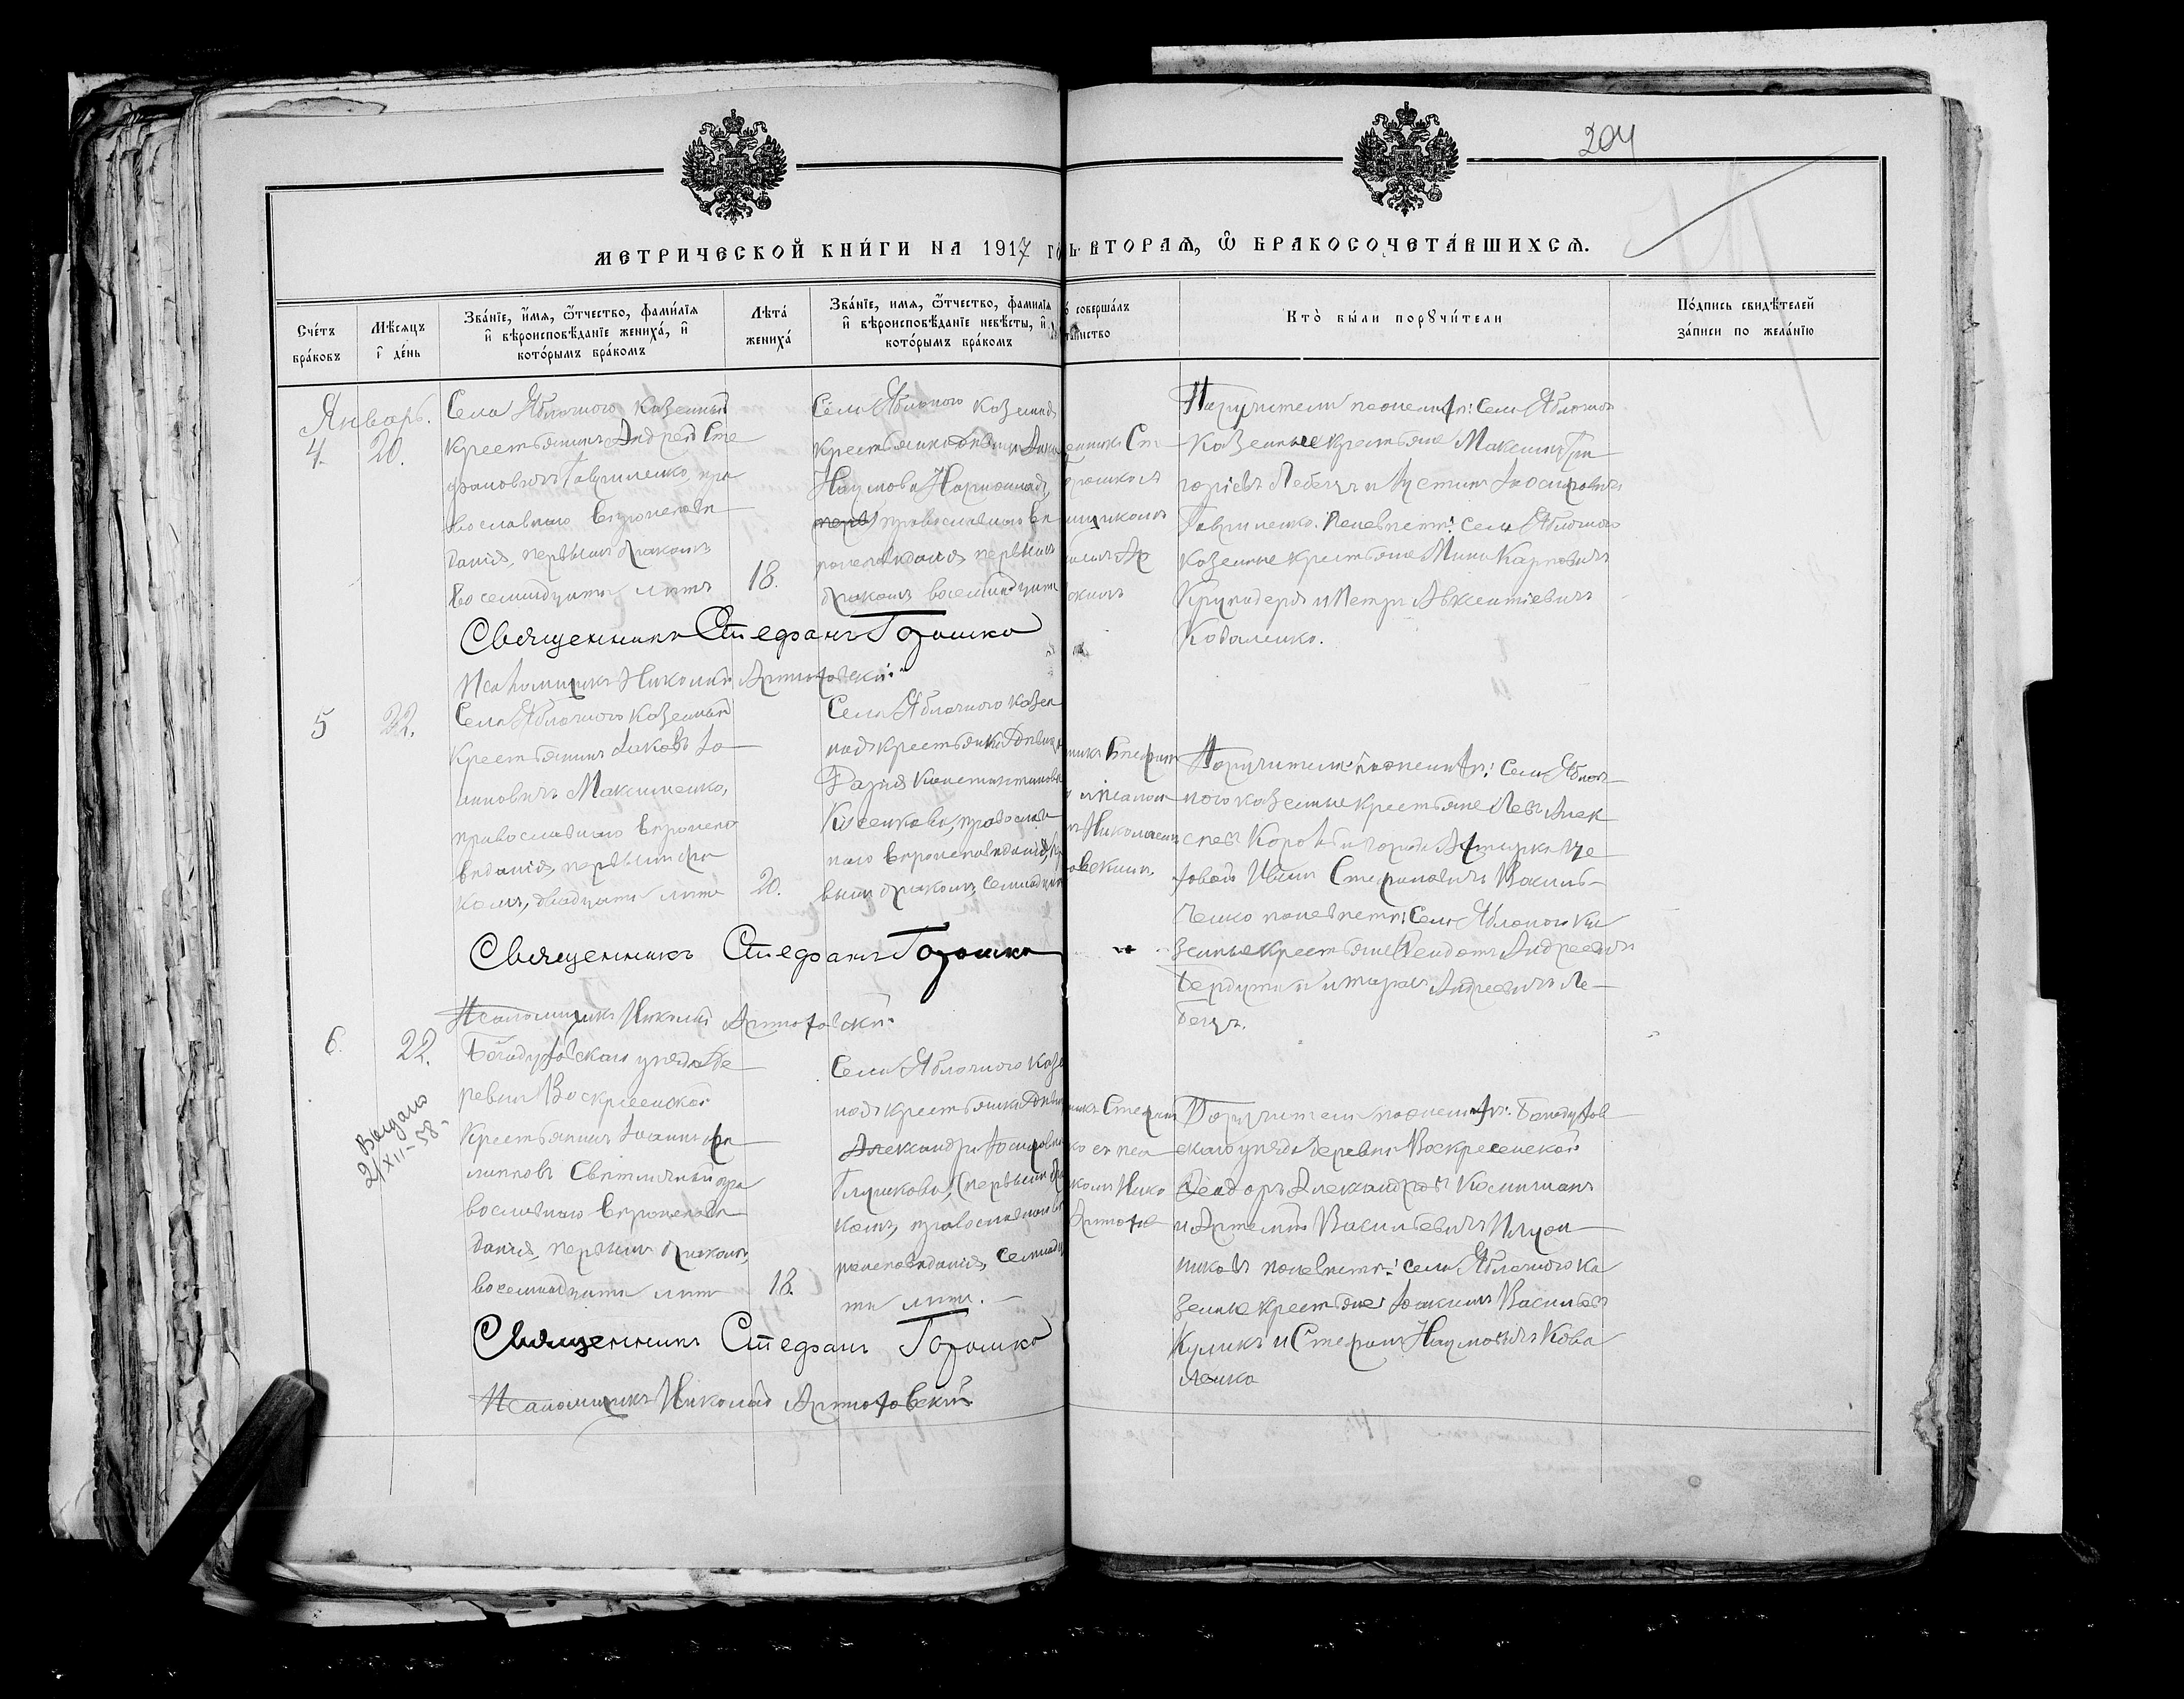 204
МЕТРИЧЕСКОЙ КНИ́ГИ НА 1917 ГО
Ь ВТОРАЯ, Ѿ БРАКОСОЧЕТА́ВШИХСЯ.
Сче́тъ бра́ковъ
Мѣ́сяцъ и҆ де́нь
Зва́нїе, и҆́мя, ѻ҆́тчество, фами́лїя
и҆ вѣроисповѣ́данїе жениха́, и҆
кото́рымъ бра́комъ
Лѣта́ жениха́
Зва́нїе, имя, ѻ҆́тчество, фами́лїя
и҆ вѣроисповѣ́данїе невѣ́сты, и҆
кото́рымъ бра́комъ
соверша́лъ
таинство
Кто̀ бы́ли порꙋчи́тели
По́дпись свидѣ́телей
за́писи по жела́нїю
Январь.
4.
20.
Села Яблочного казенный
крестьянинъ Андрей Сте
фановичъ Гавриленко, пра
вославнаго вѣроисповѣ
данія, первымъ бракомъ
восемнадцати лѣтъ
18.
Села Яблочного казенная
крестьянка дѣвица
Наумова
православнаго вѣ
роисповѣданія, первымъ
бракомъ восемнадцати
енникъ Ст
орошко и
мщикомъ
Поручители по женихѣ: села Яблочного
казенные крестьяне Максимъ Гри
горіевъ Лебець и Іустинъ Іосифовичъ
Гавриленко. По невѣстѣ: села Яблочного
казенные крестьяне Мина Карповичъ
Крупидеря и Петръ Авксентіевичъ
Коваленко.
Священникъ Стефанъ Горошко
Псаломщикъ Николай Артюховскій
5
22.
Села Яблочного казенный
крестьянинъ Іаковъ Іо
анновичъ Максименко,
православнаго вѣроиспо
вѣданія, первымъ бра
комъ, двадцати лѣтъ
20.
Села Яблочного казен
ная крестьянка дѣвица
Константинова
православ
наго вѣроисповѣданія, пер
вымъ бракомъ, семнадцати
никъ Стефан
и псалом
ъ Николаемъ
овскимъ.
Поручители по женихѣ: села Яблоч
ного казенные крестьяне Левъ Алек
сѣевъ и города Ахтырки це
ховой Иванъ Стефановичъ Василь
ченко по невѣстѣ: села Яблочного ка
зенные крестьяне Ѳеодотъ Андреевичъ
Бердута и Андреевичъ Ле
бець.
Священникъ Стефанъ Горошко
Псаломщикъ Николай Артюховскій
6.
22.
Выдано
2/XII-58
Богодуховскаго уѣзда де
ревни Воскресенской
крестьянинъ Іоаннъ Фи
липповъ Свѣтличный пра
вославнаго вѣроисповѣ
данія, первымъ бракомъ,
восемнадцати лѣтъ
18.
Села Яблочного казен
ная крестьянка дѣвица
Александра Іосифовна
Глушкова, первымъ бра
комъ, православнаго вѣ
роисповѣданія, семнадца
ти лѣтъ.
никъ Стефан
ко съ пса
комъ Нико
Артюхов
Поручители по женихѣ: Богодухов
скаго уѣзда деревни Воскресенской
Ѳеодоръ Александровъ
и Артемій Васильевичъ
по невѣстѣ: села Яблочного ка
зенные крестьяне Іоакимъ Васильевъ
Куликъ и Стефанъ Наумовичъ Кова
ленко
Священникъ Стефанъ Горошко
Псаломщикъ Николай Артюховскій